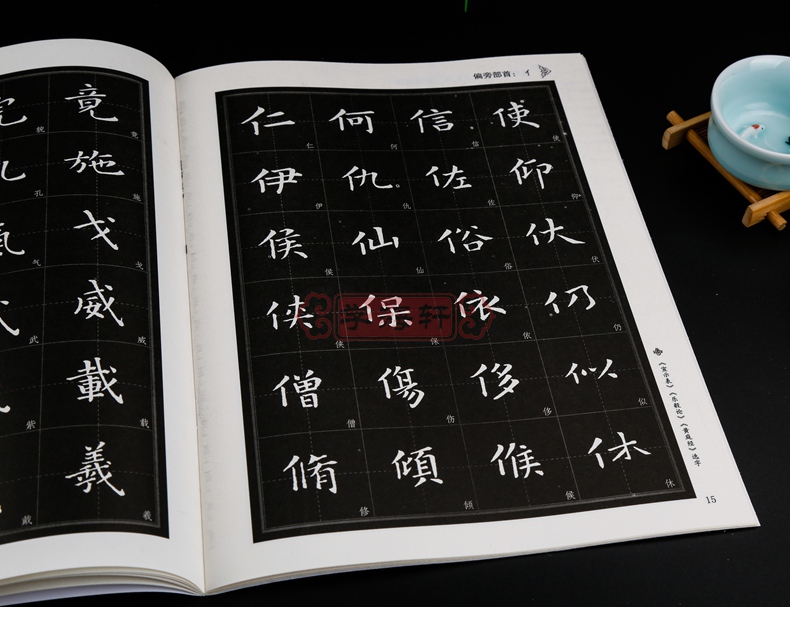 竟
竟
孔 施
孔 施
氣 戈
气 戈
威
武 威
載
紫 载
羲
戴 羲
偏旁部首：亻
仁 何 信 使
仁 何 信 使
伊 仇 佐 仰
伊 仇 佐 仰
侯 仙 俗 伏
侯 仙 俗 伏
俠 保 依 仍
侠 保 依 仍
僧 傷 侈 似
僧 伤 侈 似
脩 傾 候 休
修 倾 候 休
《宣示表》《乐毅论》《黄庭经》选字
15
学海轩